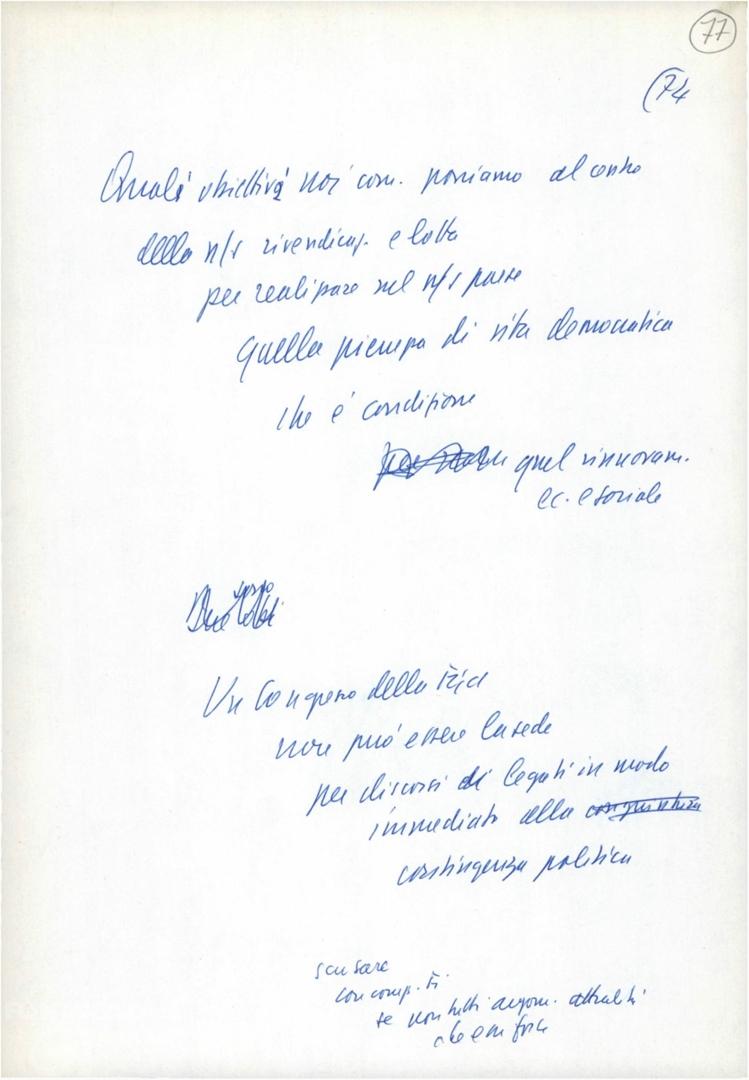 77
(74
Quali obiettivi noi com. poniamo al centro
della n/s rivendicaz. e lotta
per realizzare nel n/s paese
quella pienezza di vita democratica
che è condizione
quel rinnovam.
ec. e sociale
Un Congresso della FGCI
non può essere la sede
per discorsi di legati in modo
immediato alla congiuntura
contingenza politica
scusare
con comp. ti
se non tutti argom. attualità
che